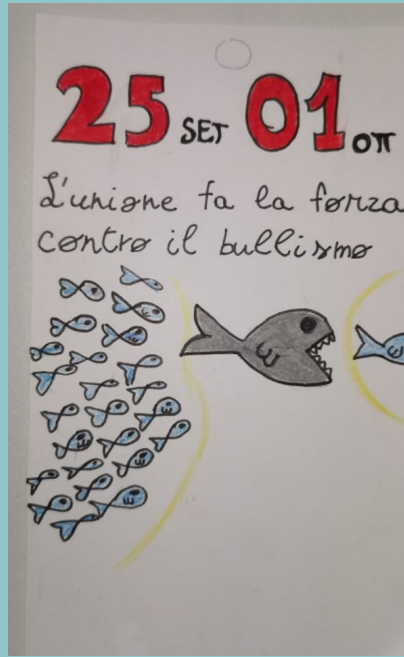 25 SET 01 OTT
L'unione fa la forza
contro il bullismo